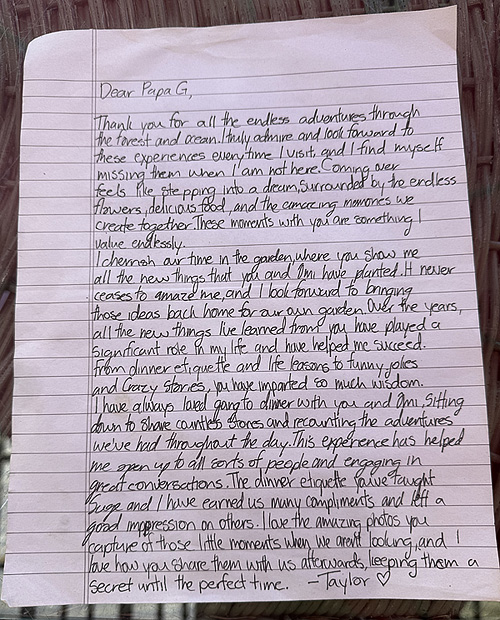 Dear Papa G,
Thank you for all the endless adventures through
the forest and ocean. I truly admire and look forward to
these experiences every time I visit, and I find myself
missing them when I am not here. Coming over
feels like stepping into a dream, Surrounded by the endless
flowers, delicious food, and the amazing memories we
create together. These moments with you are something I
value endlessly.
I cherish our time in the garden, where you show me
all the new things that you and Omi have planted. It never
ceases to amaze me, and I look forward to bringing
those ideas back home for our own garden. Over the years,
all the new things I've learned from you have played a
significant role in my life and have helped me succeed.
From dinner etiquette and life lessons to funny jokes
and Crazy Stories, you have imparted so much wisdom.
I have always loved going to dinner with you and Omi, Sitting
down to share countless stories and recounting the adventures
we've had throughout the day. This experience has helped
me open up to all sorts of people and engaging in
great conversations. The dinner etiquette you've taught
Suge and I have earned us many compliments and left a
good impression on others. I love the amazing photos you
capture of those little moments when we aren't looking, and I
love how you share them with us afterwards, keeping them a
secret until the perfect time. -Taylor ♡